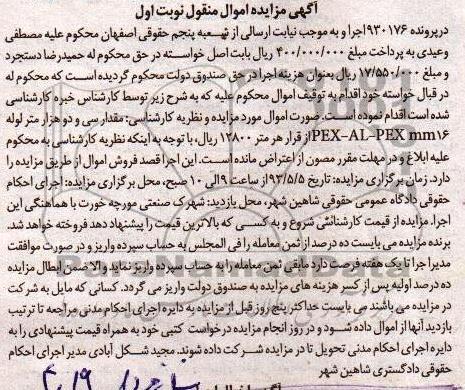 آگهی مزایده اموال منقول نوبت اول
درپرونده ۹۳۰۱۷۶اجرا و به موجب نیابت ارسالی از شعبه پنجم حقوقی اصفهان محکوم علیه مصطفی
وعیدی به پرداخت مبلغ ۴۰۰/۰۰۰/۰۰۰ ریال بابت اصل خواسته در حق محکوم له حمیدرضا دستجرد
و مبلغ ۱۷/۵۵۰/۰۰۰ ریال بعنوان هزینه اجرا در حق صندوق دولت محکوم گردیده است که محکوم له
در قبال خواسته خود اقدام به توقیف اموال محکوم علیه که به شرح زیر توسط کارشناس خبره کارشناسی
شده است اقدام نموده است. صورت اموال مورد مزایده و نظریه کارشناسی: مقدار سی و دو هزار متر لوله
PEX-AL-PEX mm۱۶ از قرار هر متر ۱۲۸۰۰ ریال، با توجه به اینکه نظریه کارشناسی به محکوم
علیه ابلاغ و در مهلت مقرر مصون از اعتراض مانده است. این اجرا قصد فروش اموال از طریق مزایده را
دارد. زمان برگزاری مزایده: تاریخ ۹۳/۵/۵ از ساعت ۹ الی ۱۰ صبح، محل برگزاری مزایده: اجرای احکام
حقوقی دادگاه عمومی حقوقی شاهین شهر، محل بازدید: شهرک صنعتی مورچه خورت با هماهنگی این
اجرا. مزایده از قیمت کارشناسی شروع و به کسی که بالاترین قیمت را پیشنهاد دهد فروخته خواهد شد.
برنده مزایده می بایست ده درصد از ثمن معامله را فی المجلس به حساب سپرده واریز و در صورت موافقت
مدیر اجرا تا یک هفته فرصت دارد مابقی ثمن معامله را به حساب سپرده واریز نماید والا ضمن ابطال مزایده
ده درصد اولیه پس از کسر هزینه های مزایده به صندوق دولت واریز می گردد. کسانی که مایل به شرکت
در مزایده می باشند می بایست حداکثر پنج روز قبل از مزایده به دایره اجرای احکام مدنی مراجعه تا ترتیب
بازدید آنها از اموال داده شود و در روز انجام مزایده درخواست کتبی خود به همراه قیمت پیشنهادی را به
دایره اجرای احکام مدنی تحویل تا در مزایده شرکت داده شوند. مجید شکل آبادی مدیر اجرای احکام
حقوقی دادگستری شاهین شهر